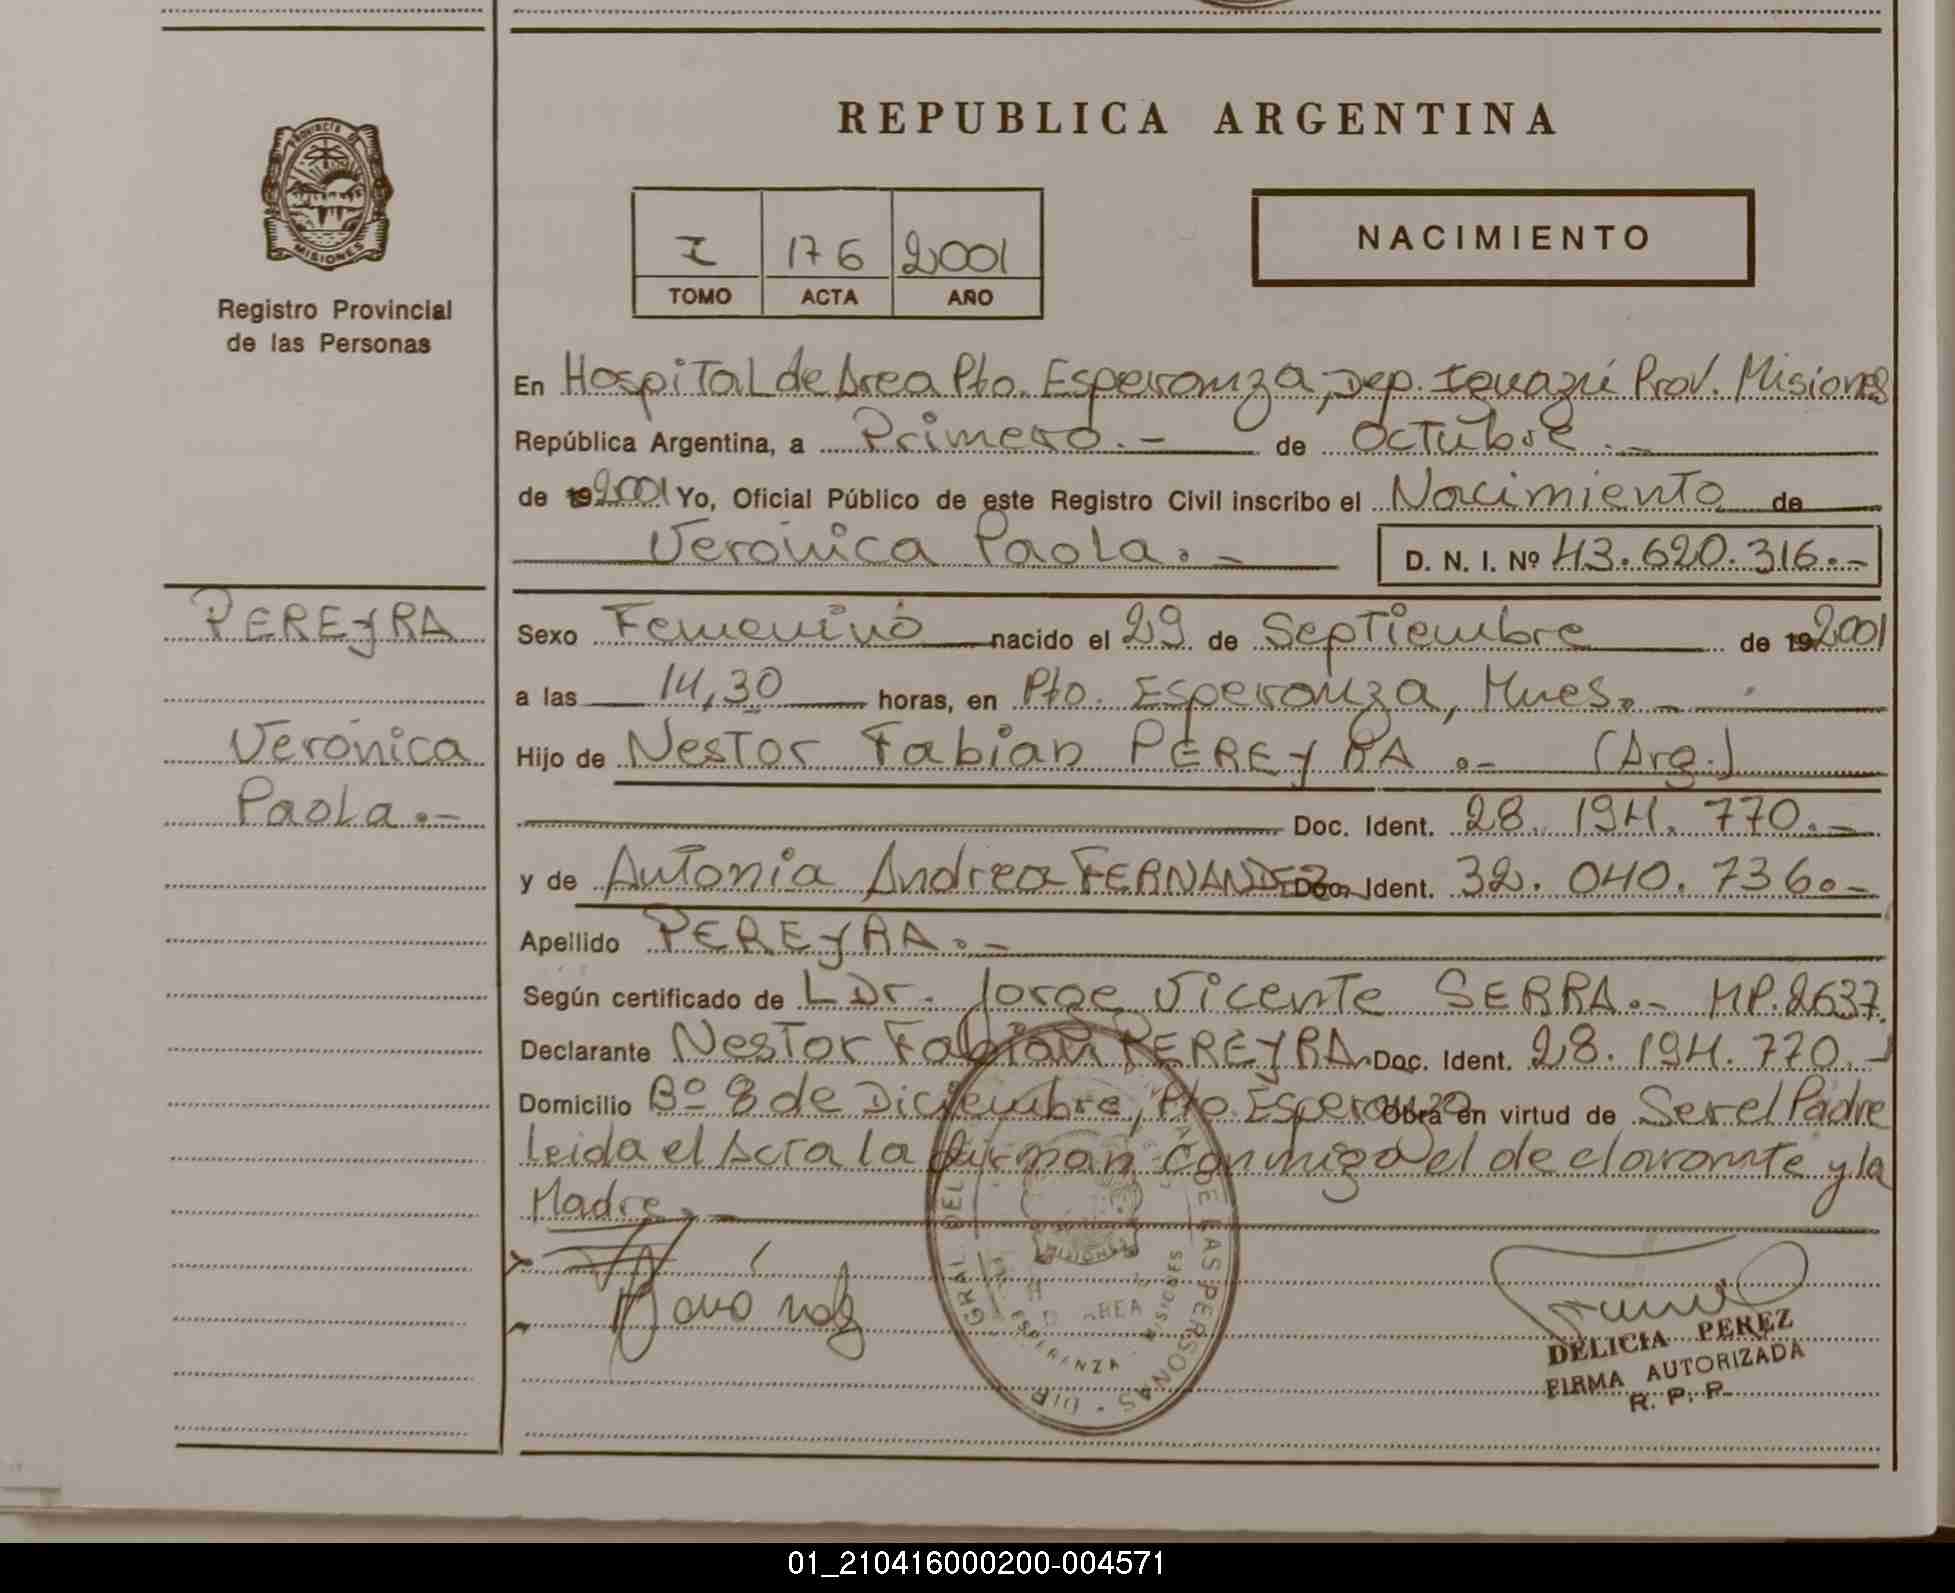 REPUBLICA ARGENTINA
PROVINCIA DE
MISIONES
Registro Provincial
de las Personas
I 176 2001
TOMO ACTA AÑO
NACIMIENTO
En Hospital de Area Pto. Esperanza, Dep. Iguazú Prov. Misiones
República Argentina, a Primero.- de Octubre.-
de 19 2001 Yo, Oficial Público de este Registro Civil inscribo el Nacimiento de
Verónica Paola.- D. N. I. Nº 43.620.316.-
PEREyRA
Verónica
Paola.-
Sexo Femenino nacido el 29 de Septiembre de 19 2001
a las 14,30 horas, en Pto. Esperanza, Mnes.-
Hijo de Nestor Fabian PEREyRA.- (Arg.)
Doc. Ident. 28.194.770.-
y de Antonia Andrea FERNANDEZ Doc. Ident. 32.040.736.-
Apellido PEREyRA.-
Según certificado de L Dr. Jorge Vicente SERRA.- MP.2637.
Declarante Nestor Fabian PEREyRA Doc. Ident. 28.194.770.-
Domicilio Bº 8 de Diciembre, Pto. Esperanza Obra en virtud de Ser el Padre
Leida el Acta la firman conmigo el declarante y la
Madre.-
GRAL. DEL DE LAS PERSONAS · DIR
AREA
ESPERANZA - MISIONES
MISIONES
DELICIA PEREZ
FIRMA AUTORIZADA
R. P. P.
01_210416000200-004571